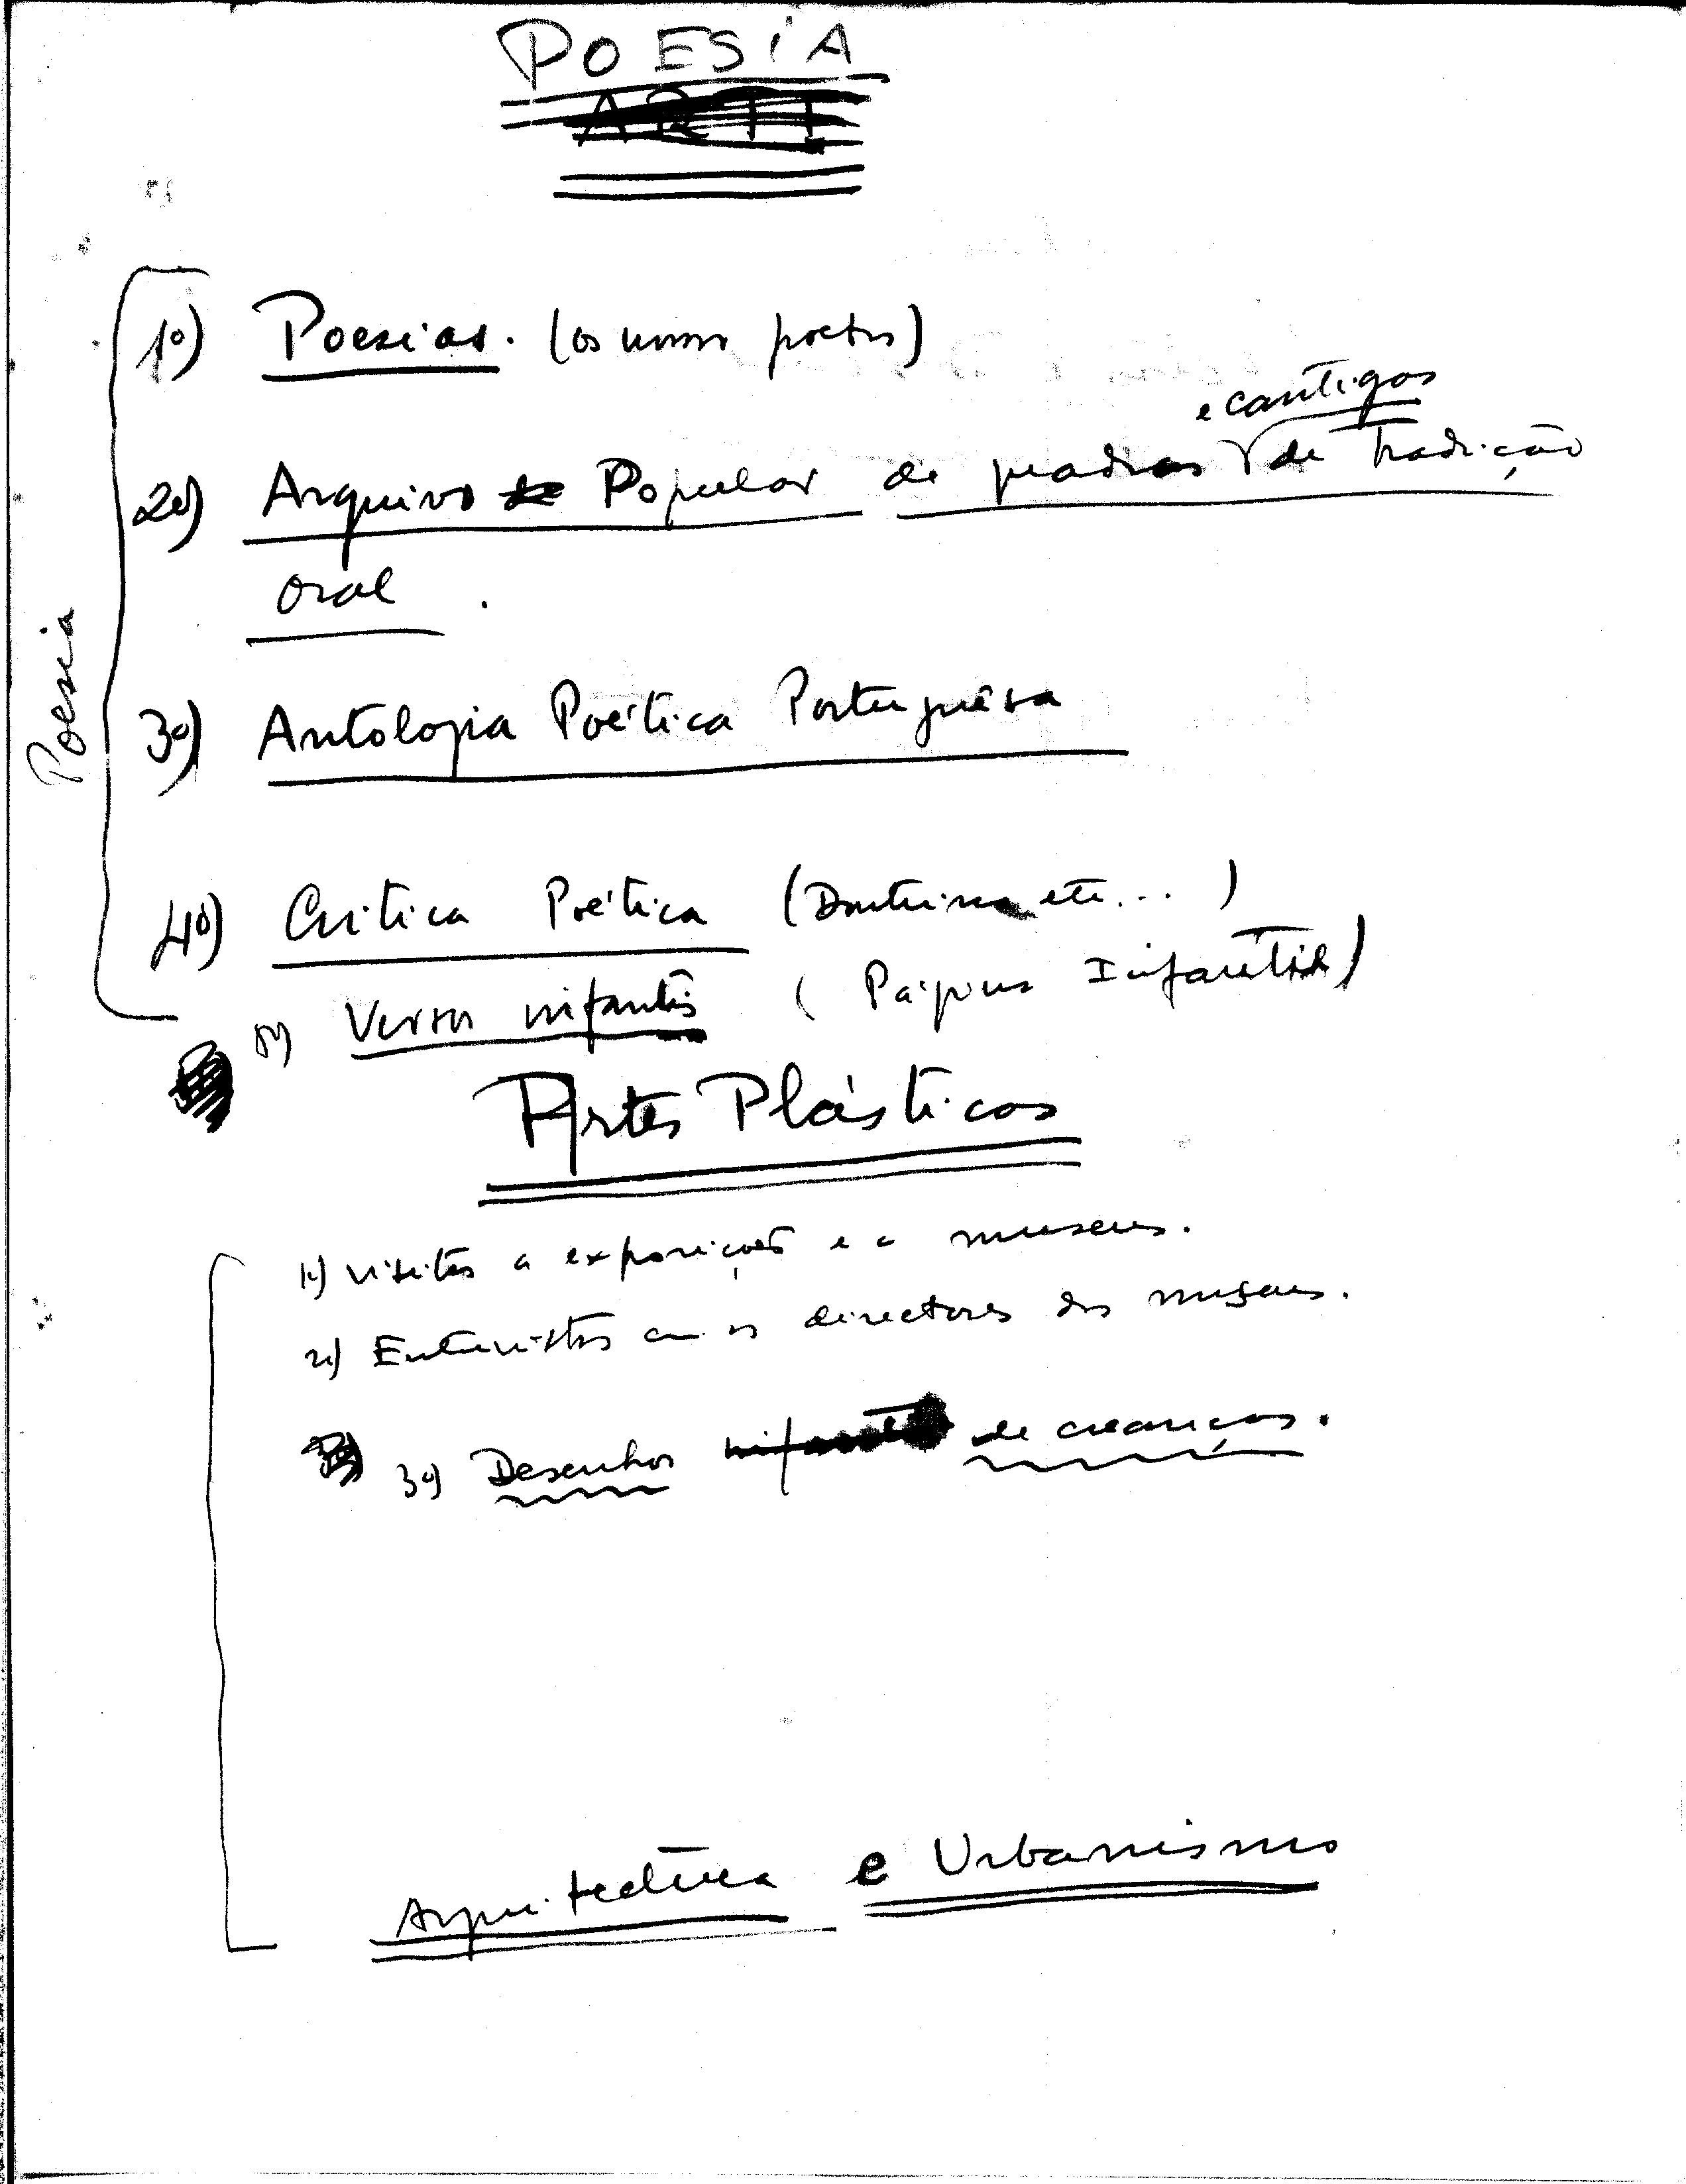 POESIA
1º) Poesias. (os nossos poetas)
e cantigas
2º) Arquivo Popular de quadras de Tradição
oral.
Poesia
3º) Antologia Poética Portuguêsa
4º) Critica Poética (Doutrina etc...)
5º) Versos infantis (Páginas Infantis)
Artes Plásticas
1º) Visitas a exposições e a museus.
2º) Entrevistas com os directores dos museus.
3º) Desenhos de creanças.
Arquitectura e Urbanismo